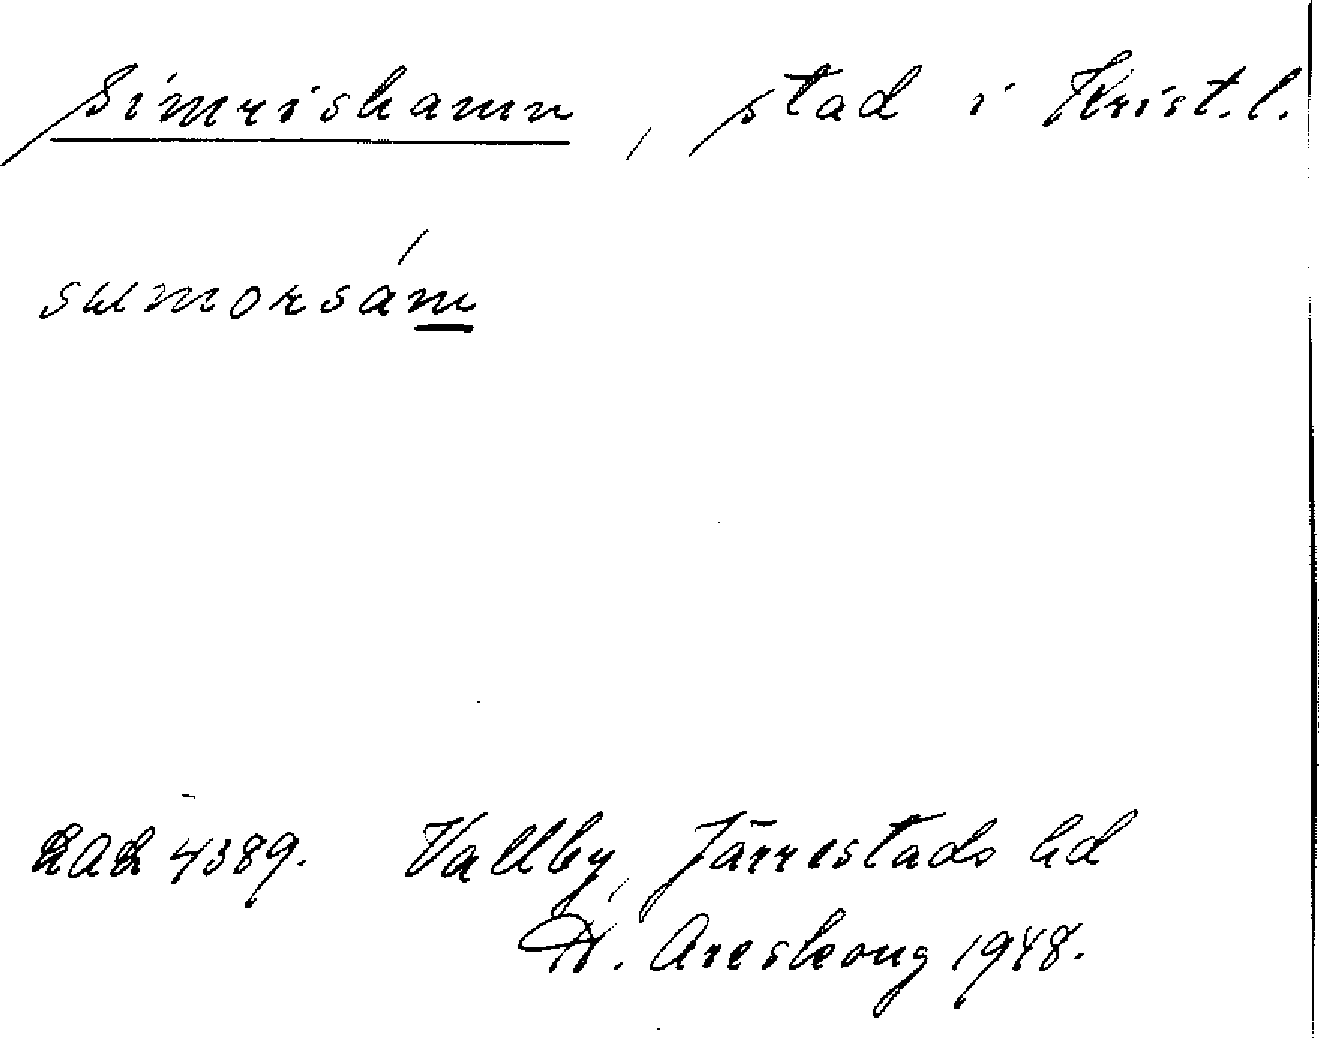 Simrishamn, stad i Krist.l.
sumorsám
LAL 4389. Vallby, Järrestads hd
H. Areskoug 1948.